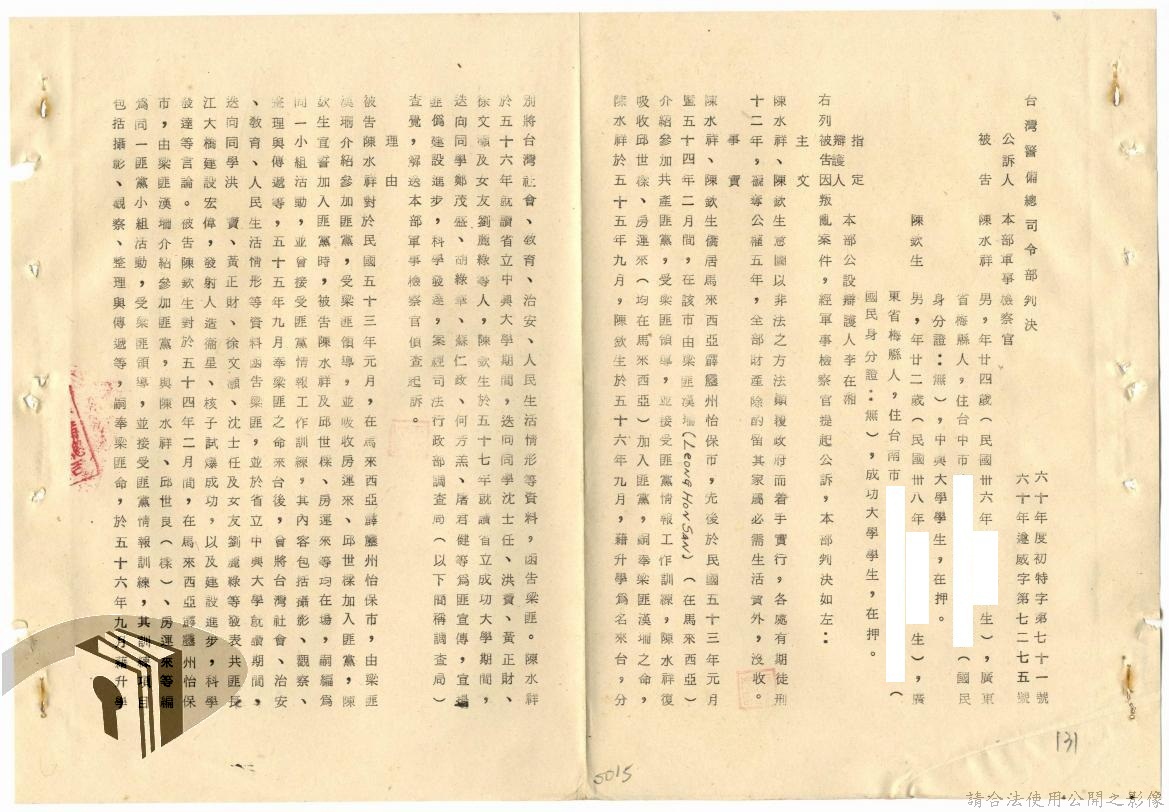 台灣警備總司令部判決
六十年度初特字第七十一號
六十年邃威字第七二七五號
公訴人　本部軍事檢察官
被告　陳水祥　男，年廿四歲（民國卅六年　生），廣東
省梅縣人，住台中市　（國民
身分證：無），中興大學學生，在押。
陳欽生　男，年廿二歲（民國卅八年　生），廣
東省梅縣人，住台南市　（
國民身分證：無），成功大學學生，在押。
指定
辯護人　本部公設辯護人李在湘
右列被告因叛亂案件，經軍事檢察官提起公訴，本部判決如左：
主文
陳水祥、陳欽生意圖以非法之方法顛覆政府而着手實行，各處有期徒刑
十二年，褫奪公權五年，全部財產除酌留其家屬必需生活費外，沒收。
事實
陳水祥、陳欽生僑居馬來西亞霹靂州怡保市，先後於民國五十三年元月
暨五十四年二月間，在該市由梁匪漢珊(LEONG HON SAN)（在馬來西亞）
介紹參加共產匪黨，受梁匪領導，並接受匪黨情報工作訓練，陳水祥復
吸收邱世樑、房運來（均在馬來西亞）加入匪黨，嗣奉梁匪漢珊之命，
陳水祥於五十五年九月，陳欽生於五十六年九月，藉升學為名來台，分
別將台灣社會、教育、治安、人民生活情形等資料，函告梁匪。陳水祥
於五十六年就讀省立中興大學期間，迭向同學沈士任、洪寶、黃正財、
徐文顯及女友劉麗綠等人，陳欽生於五十七年就讀省立成功大學期間，
迭向同學鄭茂盛、胡綠華、蘇仁政、何芳羔、屠君健等為匪宣傳，宣揚
匪偽建設進步，科學發達，案經司法行政部調查局（以下簡稱調查局）
查覺，解送本部軍事檢察官偵查起訴。
理由
被告陳水祥對於民國五十三年元月，在馬來西亞霹靂州怡保市，由梁匪
漢珊介紹參加匪黨，受梁匪領導，並吸收房運來、邱世樑加入匪黨，陳
欽生宣誓加入匪黨時，被告陳水祥及邱世樑、房運來等均在場，嗣編為
同一小組活動，並曾接受匪黨情報工作訓練，其內容包括攝影、觀察、
整理與傳遞等，五十五年九月奉梁匪之命來台後，會將台灣社會、治安
、教育、人民生活情形等資料函告梁匪，並於省立中興大學就讀期間，
迭向同學洪寶、黃正財、徐文顯、沈士任及女友劉麗綠等發表共匪長
江大橋建設宏偉，發射人造衞星、核子試爆成功，以及建設進步，科學
發達等言論。被告陳欽生對於五十四年二月間，在馬來西亞霹靂州怡保
市，由梁匪漢珊介紹參加匪黨，與陳水祥、邱世良（樑）、房運來等編
為同一匪黨小組活動，受梁匪領導，並接受匪黨情報訓練，其訓練項目
包括攝影、觀察、整理與傳遞等，嗣奉梁匪命，於五十六年九月藉升學
131
5015
請合法使用公開之影像